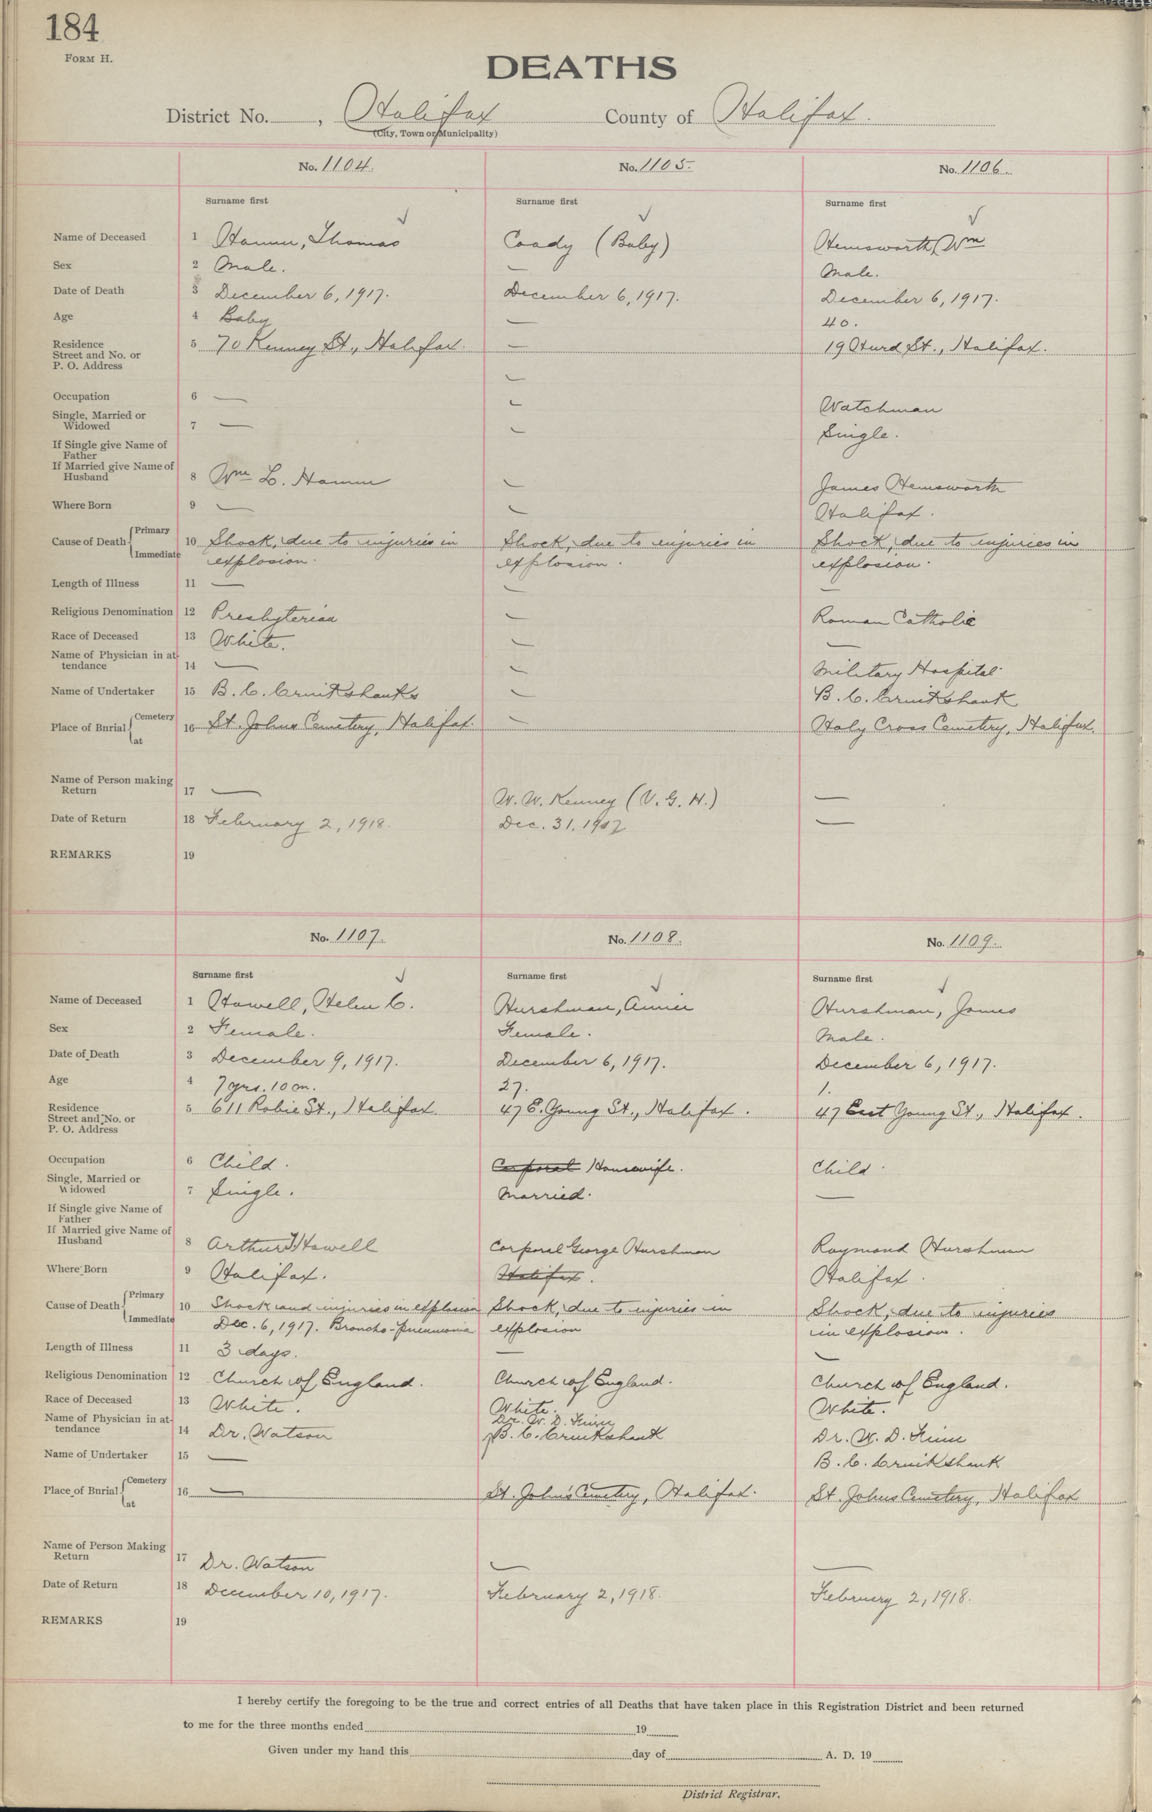 184
FORM H.
DEATHS
District No. , Halifax County of Halifax.
(City, Town or Municipality)
No. 1104. No. 1105. No. 1106.
Surname first Surname first Surname first
Name of Deceased 1 Hamm, Thomas Coady (Baby) Hemsworth, Wm
Sex 2 Male. — Male.
Date of Death 3 December 6, 1917. December 6, 1917. December 6, 1917.
Age 4 Baby — 40.
Residence
Street and No. or
P. O. Address 5 70 Kenney St., Halifax. — 19 Hurd St., Halifax.
Occupation 6 — — Watchman
Single, Married or
Widowed 7 — — Single.
If Single give Name of
Father
If Married give Name of
Husband 8 Wm L. Hamm — James Hemsworth
Where Born 9 — — Halifax.
Cause of Death { Primary
Immediate 10 Shock, due to injuries in Shock, due to injuries in Shock, due to injuries in
explosion. explosion. explosion.
Length of Illness 11 — — —
Religious Denomination 12 Presbyterian — Roman Catholic
Race of Deceased 13 White. — —
Name of Physician in at-
tendance 14 — — Military Hospital
Name of Undertaker 15 B. C. Cruikshanks — B. C. Cruikshank
Place of Burial { Cemetery
at 16 St. Johns Cemetery, Halifax. — Holy Cross Cemetery, Halifax.
Name of Person making
Return 17 — W. W. Kenney (V. G. H.) —
Date of Return 18 February 2, 1918. Dec. 31, 1917 —
REMARKS 19
No. 1107. No. 1108. No. 1109.
Surname first Surname first Surname first
Name of Deceased 1 Howell, Helen C. Hurshman, Annie Hurshman, James
Sex 2 Female. Female. Male.
Date of Death 3 December 9, 1917. December 6, 1917. December 6, 1917.
Age 4 7 yrs. 10 m. 27. 1.
Residence
Street and No. or
P. O. Address 5 611 Robie St., Halifax. 47 E. Young St., Halifax. 47 East Young St., Halifax.
Occupation 6 Child. Corporal Housewife. Child.
Single, Married or
Widowed 7 Single. Married. —
If Single give Name of
Father
If Married give Name of
Husband 8 Arthur Howell Corporal George Hurshman Raymond Hurshman
Where Born 9 Halifax. Halifax. Halifax.
Cause of Death { Primary
Immediate 10 Shock and injuries in explosion Shock, due to injuries in Shock, due to injuries
Dec. 6, 1917. Broncho-pneumonia explosion in explosion.
Length of Illness 11 3 days. — —
Religious Denomination 12 Church of England. Church of England. Church of England.
Race of Deceased 13 White. White. White.
Name of Physician in at-
tendance 14 Dr. Watson Dr. W. D. Dr. W. D.
Name of Undertaker 15 — B. C. Cruikshank B. C. Cruikshank
Place of Burial { Cemetery
at 16 — St. John's Cemetery, Halifax. St. Johns Cemetery, Halifax
Name of Person Making
Return 17 Dr. Watson — —
Date of Return 18 December 10, 1917. February 2, 1918. February 2, 1918.
REMARKS 19
I hereby certify the foregoing to be the true and correct entries of all Deaths that have taken place in this Registration District and been returned
to me for the three months ended 19
Given under my hand this day of A. D. 19
District Registrar.